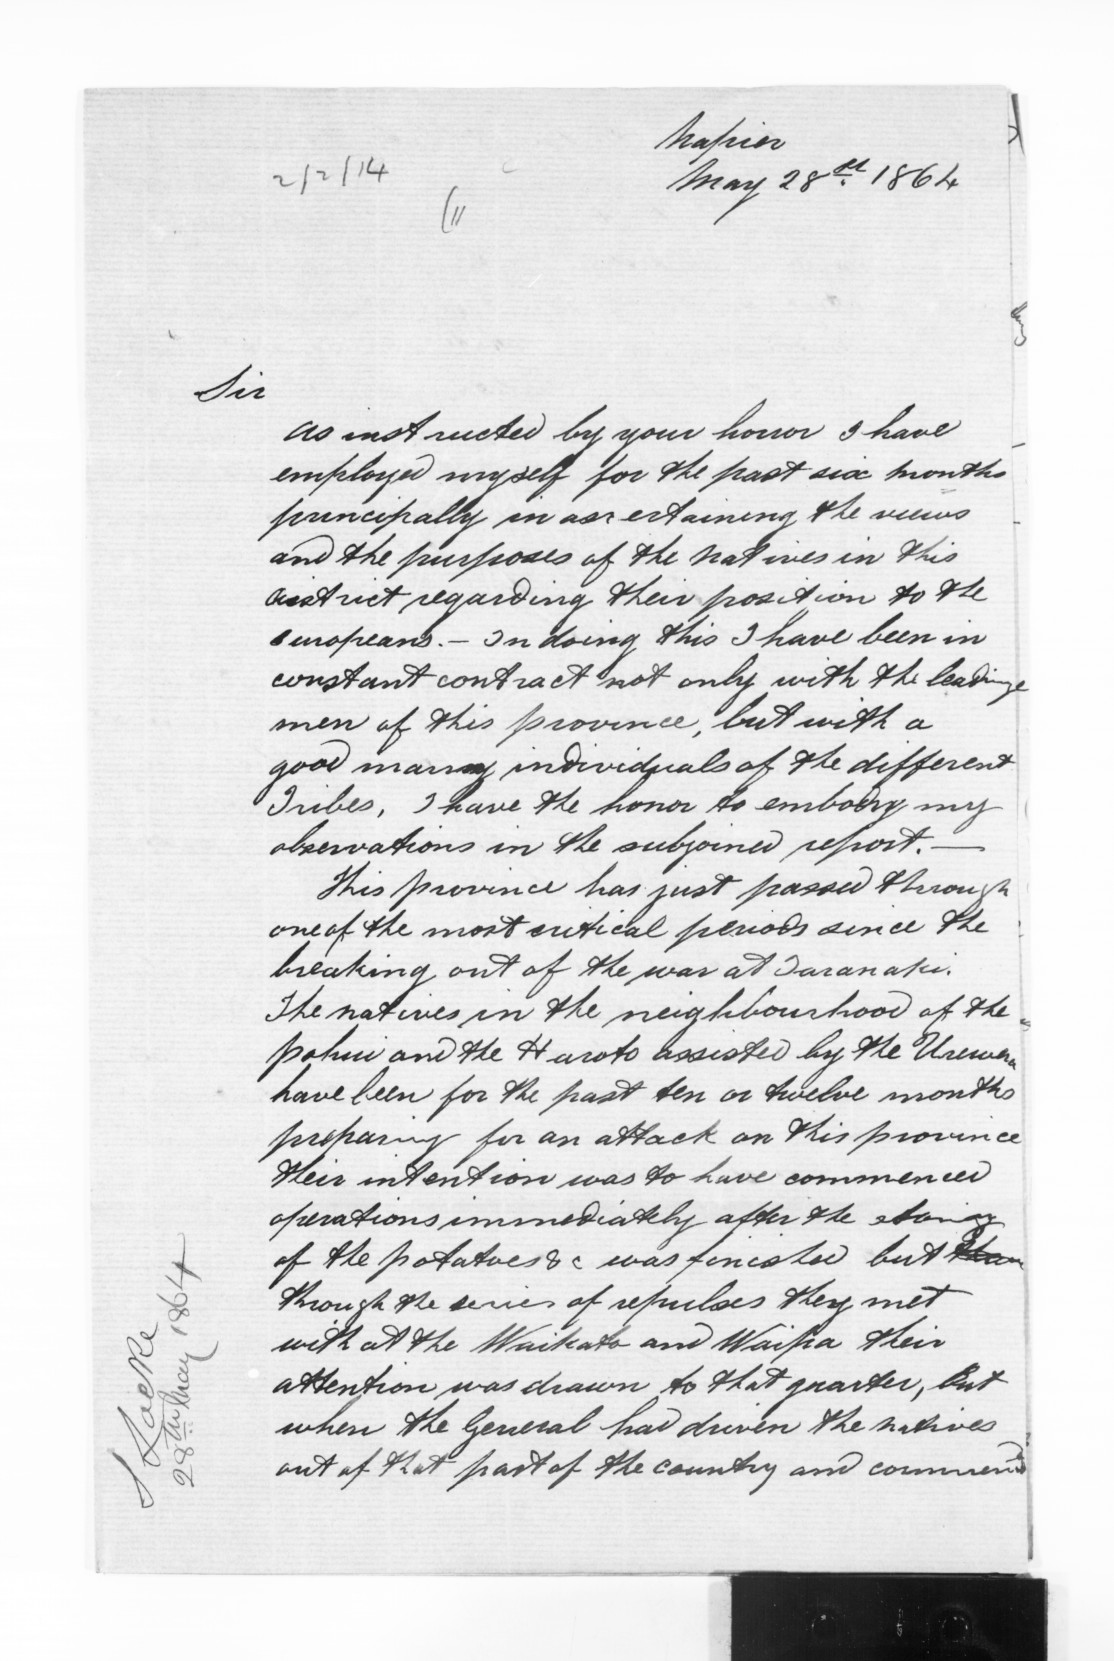 Napier
May 28th 1864
2/2/14
(11
Sir
As instructed by your honor I have
employed myself for the past six months
principally in ascertaining the views
and the purposes of the natives in this
district regarding their position to the
europeans. — In doing this I have been in
constant contract not only with the leading
men of this province, but with a
good many individuals of the different
Tribes, I have the honor to embody my
observations in the subjoined report. —
This province has just passed through
one of the most critical periods since the
breaking out of the war at Taranaki.
The natives in the neighbourhood of the
pohui and the Haroto assisted by the Urewera
have been for the past ten or twelve months
preparing for an attack on this province
their intention was to have commenced
operations immediately after the storing
of the potatoes &c was finished but
through the series of repulses they met
with at the Waikato and Waipa their
attention was drawn to that quarter, But
when the General had driven the natives
out of that part of the country and commenced
S Locke
28th May 1864